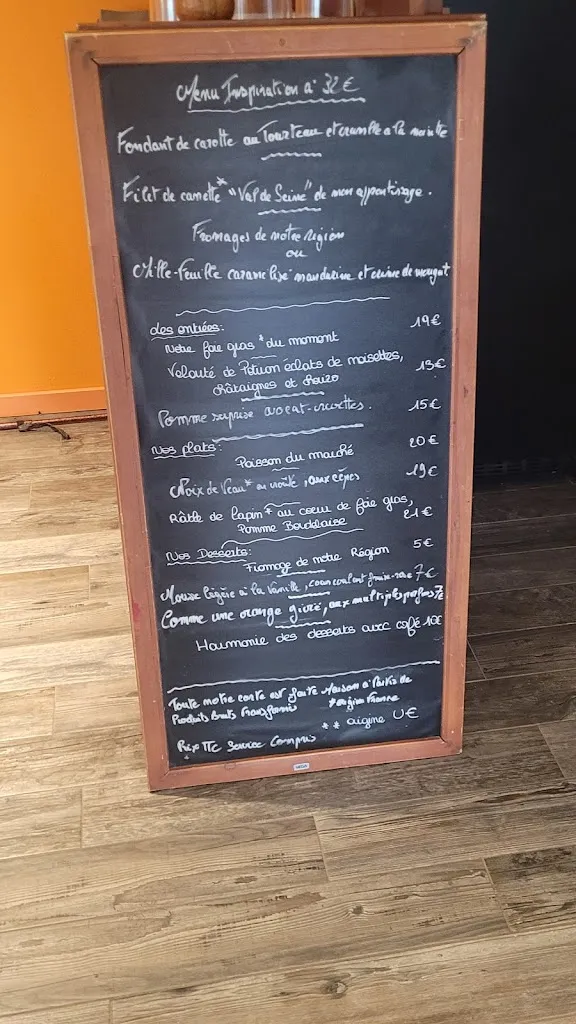 Menu Inspiration à 32€
Fondant de carotte au Tourteau et crumble à la noisette
Filet de canette* "Val de Seine" de mon apprentissage.
Fromages de notre région
ou
Mille-Feuille caramélisé mandarine et crème de nougat
des entrées:
Notre foie gras * du moment 19€
Velouté de Potiron éclats de noisettes, 13€
châtaignes et chorizo
Pomme surprise avocat-crevettes. 15€
Nos plats:
Poisson du marché 20€
Noix de Veau* au noilly, aux cèpes 19€
Râble de lapin * au coeur de foie gras, 21€
Pomme Bordelaise
Nos Desserts:
Fromage de notre Région 5€
Mousse légère à la Vanille, coeur coulant fraise 7€
Comme une orange givré, aux multiples parfums 7€
Harmonie des desserts avec café 10€
Toute notre carte est faite Maison à Partir de
Produits Bruts Transformés * origine France
** origine U€
Prix TTC Service Compris